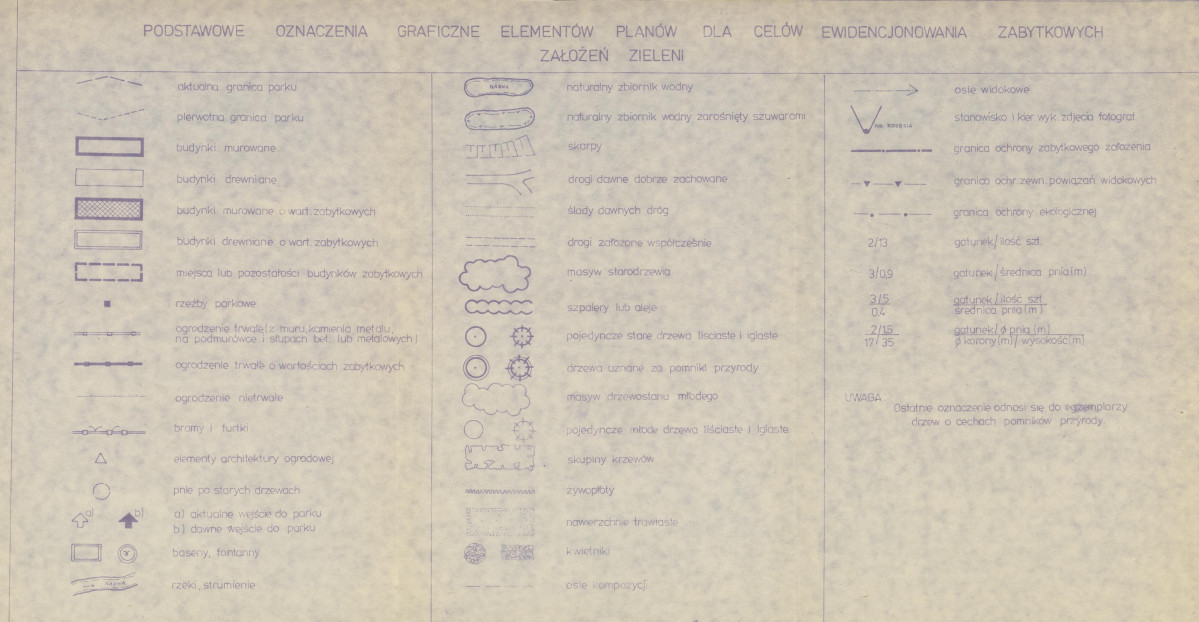 PODSTAWOWE OZNACZENIA GRAFICZNE ELEMENTÓW PLANÓW DLA CELÓW EWIDENCJONOWANIA ZABYTKOWYCH
ZAŁOŻEŃ ZIELENI
aktualna granica parku
pierwotna granica parku
budynki murowane
budynki drewniane
budynki murowane o wart. zabytkowych
budynki drewniane o wart. zabytkowych
miejsca lub pozostałości budynków zabytkowych
rzeźby parkowe
ogrodzenie trwałe (z muru, kamienia metalu,
na podmurówce i słupach bet. lub metalowych)
ogrodzenie trwałe o wartościach zabytkowych
ogrodzenie nietrwałe
bramy i furtki
elementy architektury ogrodowej
pnie po starych drzewach
a)
b)
a) aktualne wejście do parku
b) dawne wejście do parku
baseny, fontanny
NAZWA
rzeki, strumienie
NAZWA
naturalny zbiornik wodny
naturalny zbiornik wodny zarośnięty szuwarami
skarpy
drogi dawne dobrze zachowane
ślady dawnych dróg
drogi założone współcześnie
masyw starodrzewia
szpalery lub aleje
pojedyncze stare drzewa liściaste i iglaste
drzewa uznane za pomniki przyrody
masyw drzewostanu młodego
pojedyncze młode drzewa liściaste i iglaste
skupiny krzewów
żywopłoty
nawierzchnie trawiaste
kwietniki
osie kompozycji
osie widokowe
stanowisko i kier wyk. zdjęcia fotograf.
granica ochrony zabytkowego założenia
granica ochr. zewn. powiązań widokowych
granica ochrony ekologicznej
2/13 gatunek/ilość szt.
3/0,9 gatunek/średnica pnia (m)
3/5 gatunek/ilość szt.
0,4 średnica pnia (m)
2/1,5 gatunek/ø pnia (m)
17/35 ø korony (m)/wysokość (m)
UWAGA:
Ostatnie oznaczenie odnosi się do egzemplarzy
drzew o cechach pomników przyrody